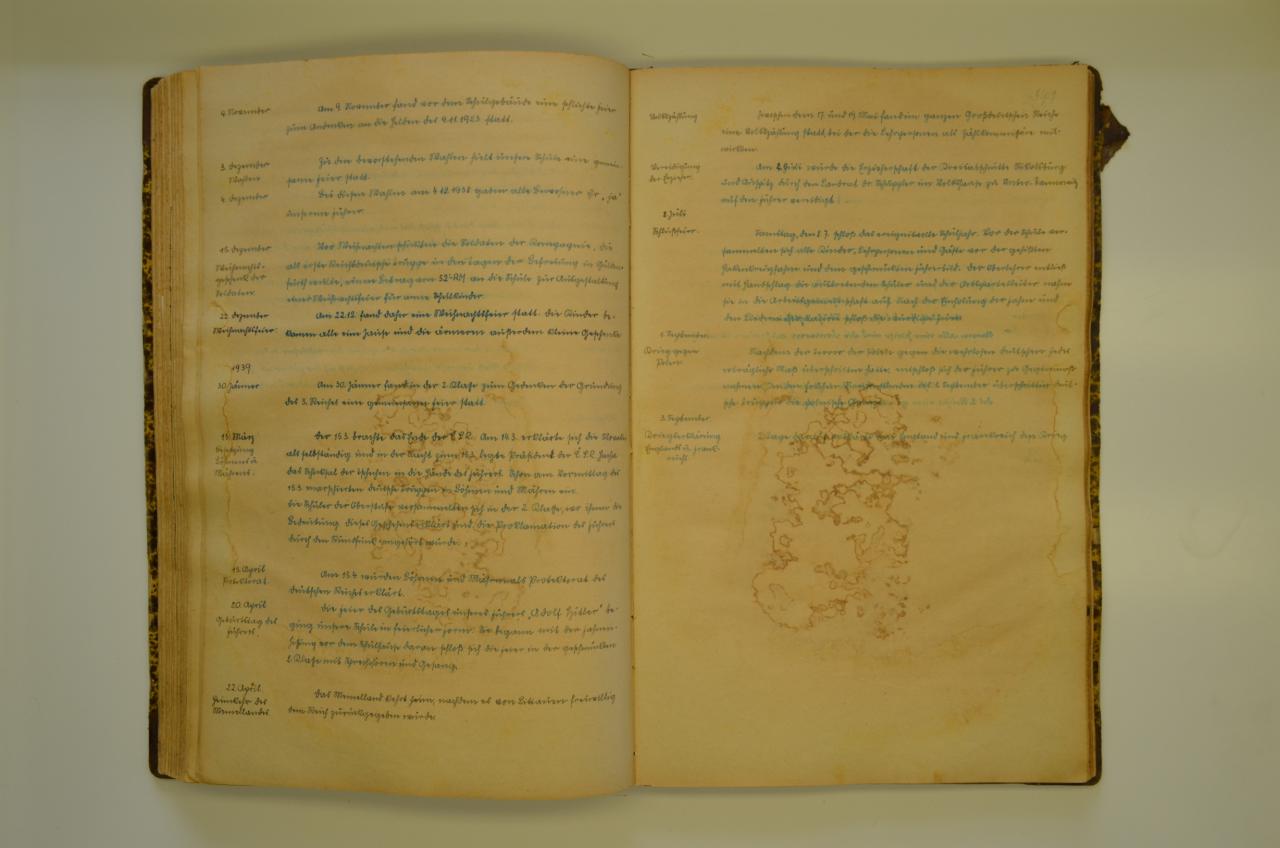 9. November
Am 9. November fand vor dem Schulgebäude eine schlichte Feier
zum Andenken an die Helden des 9.11.1923 statt.
3. Dezember
Wahlen
Zu den bevorstehenden Wahlen hielt unsere Schule eine gemein-
same Feier statt.
4. Dezember
Bei diesen Wahlen am 4.12.1938 gaben alle Bewohner ihr „ja"
unserem Führer.
15. Dezember
Weihnachts-
geschenk der
Soldaten
Vor Weihnachten schickten die Soldaten der Kompagnie, die
als erste Reichsdeutsche Truppe in den Tagen der Befreiung in Gulden-
furth weilte, einen Betrag von 52'- RM an die Schule zur Ausgestaltung
einer Weihnachtsfeier für arme Schulkinder.
22. Dezember
Weihnachtsfeier.
Am 22.12. fand daher eine Weihnachtsfeier statt. Die Kinder be-
kamen alle eine Jause und die ärmeren außerdem kleine Geschenke
1939
30. Jänner
Am 30. Jänner fand in der 2. Klasse zum Gedenken der Gründung
des 3. Reiches eine gemeinsame Feier statt.
15. März
Besetzung
Böhmens u.
Mährens.
Der 15.3. brachte das Ende der Č.S.R. Am 14.3. erklärte sich die Slovakei
als selbständig und in der Nacht zum 15.3. legte Präsident der Č.S.R. Hacha
das Schicksal der Tschechen in die Hände des Führers. Schon am Vormittag des
15.3. marschierten deutsche Truppen in Böhmen und Mähren ein.
Die Schüler der Oberstufe versammelten sich in der 2. Klasse, wo ihnen die
Bedeutung dieses Geschehens erklärt und die Proklamation des Führers
durch den Rundfunk angehört wurde.
15. April
Protektorat.
Am 15.4. wurden Böhmen und Mähren als Protektorat des
deutschen Reiches erklärt.
20. April
Geburtstag des
Führers.
Die Feier des Geburtstages unseres Führers „Adolf Hitler" be-
ging unsere Schule in feierlicher Form. Sie begann mit der Fahnen-
hissung vor dem Schulhause daran schloß sich die Feier in der geschmückten
2. Klasse mit Sprechchören und Gesang.
22. April.
Heimkehr des
Memellandes.
Das Memelland kehrt heim, nachdem es von Littauen freiwillig
dem Reich zurückgegeben wurde.
Volkszählung
Zwischen dem 17. und 19. Mai fand im ganzen Großdeutschen Reiche
eine Volkszählung statt, bei der die Lehrpersonen als Zählkommissäre mit-
wirkten.
Vereidigung
der Erzieher.
Am 2. Juli wurde die Erzieherschaft der Kreisabschnitte Nikolsburg
und Auspitz durch den Landrat Dr. in Unter-Tannowitz
auf den Führer vereidigt.
8. Juli
Schlußfeier.
Samstag, den 8.7. schloß das ereignisvolle Schuljahr. Vor der Schule ver-
sammelten sich alle Kinder, Lehrpersonen und Gäste vor der gehißten
Hakenkreuzfahne und dem geschmückten Führerbild. Der Oberlehrer entließ
mit Handschlag die austretenden Schüler und der Ortsgruppenleiter nahm
sie in die Arbeitsgemeinschaft auf. Nach der Einholung der Fahne und
den Liedern der Nation schloß die würdige Feier.
1. September
Krieg gegen
Polen.
Nachdem der Terror der Polen gegen die wehrlosen Deutschen jedes
erträgliche Maß überschritten hatte, entschloß sich der Führer zu Gegenmaß-
nahmen. In den frühen Morgenstunden des 1. September überschritten deut-
sche Truppen die polnische Grenze.
3. September
Kriegserklärung
Englands u. Frank-
reichs.
2 Tage später erklärte uns England und Frankreich den Krieg